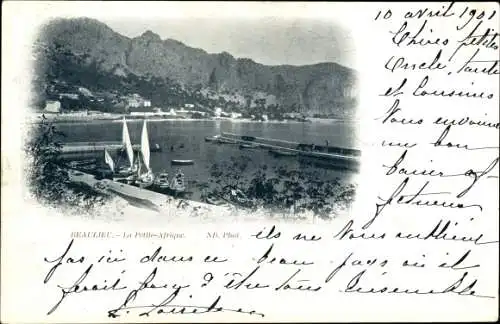 10 avril 1901
Chères petites
Oncle, tante
et cousins
Vous envoient
un bon
baiser
BEAULIEU. — La Petite Afrique. ND. Phot.
ils ne vous oublient
pas ici dans ce beau pays où il
ferait bon d'être tous ensemble